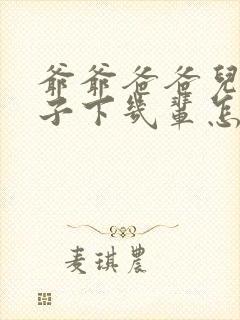 爺爺爸爸兒
子下幾輩怎
麦琪農